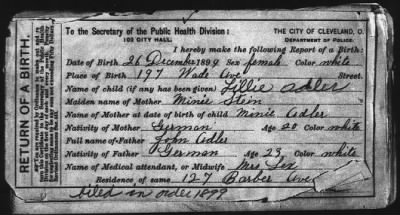 RETURN OF A BIRTH.
To the Secretary of the Public Health Division:
103 CITY HALL.
THE CITY OF CLEVELAND, O.
DEPARTMENT OF POLICE.
I hereby make the following Report of a Birth:
Date of Birth 26 December 1899 Sex female Color white
Place of Birth 197 Wade Ave Street.
Name of child (if any has been given) Lillie Adler
Maiden name of Mother Minie Stein
Name of Mother at date of birth of child Minie Adler
Nativity of Mother German Age 20 Color white
Full name of Father John Adler
Nativity of Father German Age 23 Color white
Name of Medical attendant, or Midwife Mrs
Residence of same 127 Barber Ave
filed in order 1899